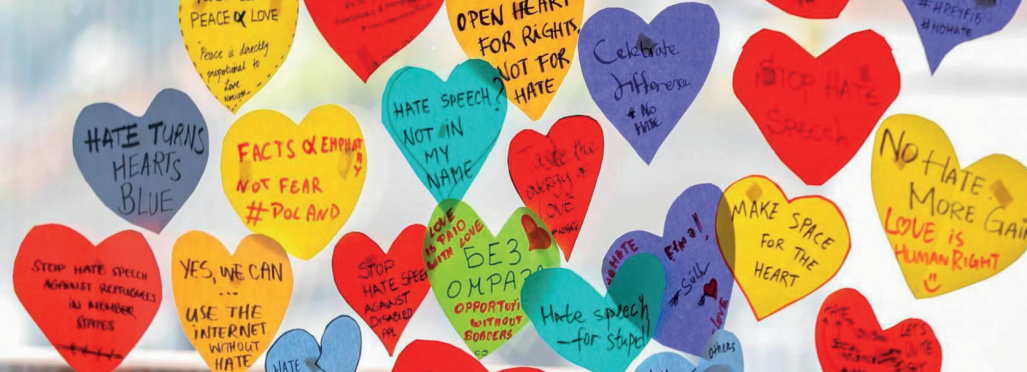 PEACE & LOVE
Peace is directly
proportional to
love
OPEN HEART
FOR RIGHTS,
NOT FOR
HATE
Celebrate
difference
#NO
HATE
#NOHATE
STOP HATE
Speech
HATE TURNS
HEARTS
BLUE
FACTS & EMPHATY
NOT FEAR
#POLAND
HATE SPEECH?
NOT IN
MY
NAME
Taste the
ENERGY of
LOVE
NO HATE
MORE Gain
LOVE is
HUMAN RIGHT
STOP HATE SPEECH
AGAINST REFFUGEES
IN MEMBER
STATES
YES, WE CAN
...
USE THE
INTERNET
WITHOUT
HATE
STOP
HATE SPEE
AGAINST
DISABLED
PPL
LOVE
IS PAID
WITH LOVE
БЕЗ
ОМРАЗА
OPPORTUNI
WITHOUT
BORDERS
NO HATE
Still
LOVE
MAKE SPACE
FOR THE
HEART
Hate speech
-for stupid!
HATE
OTHERS
LET'S